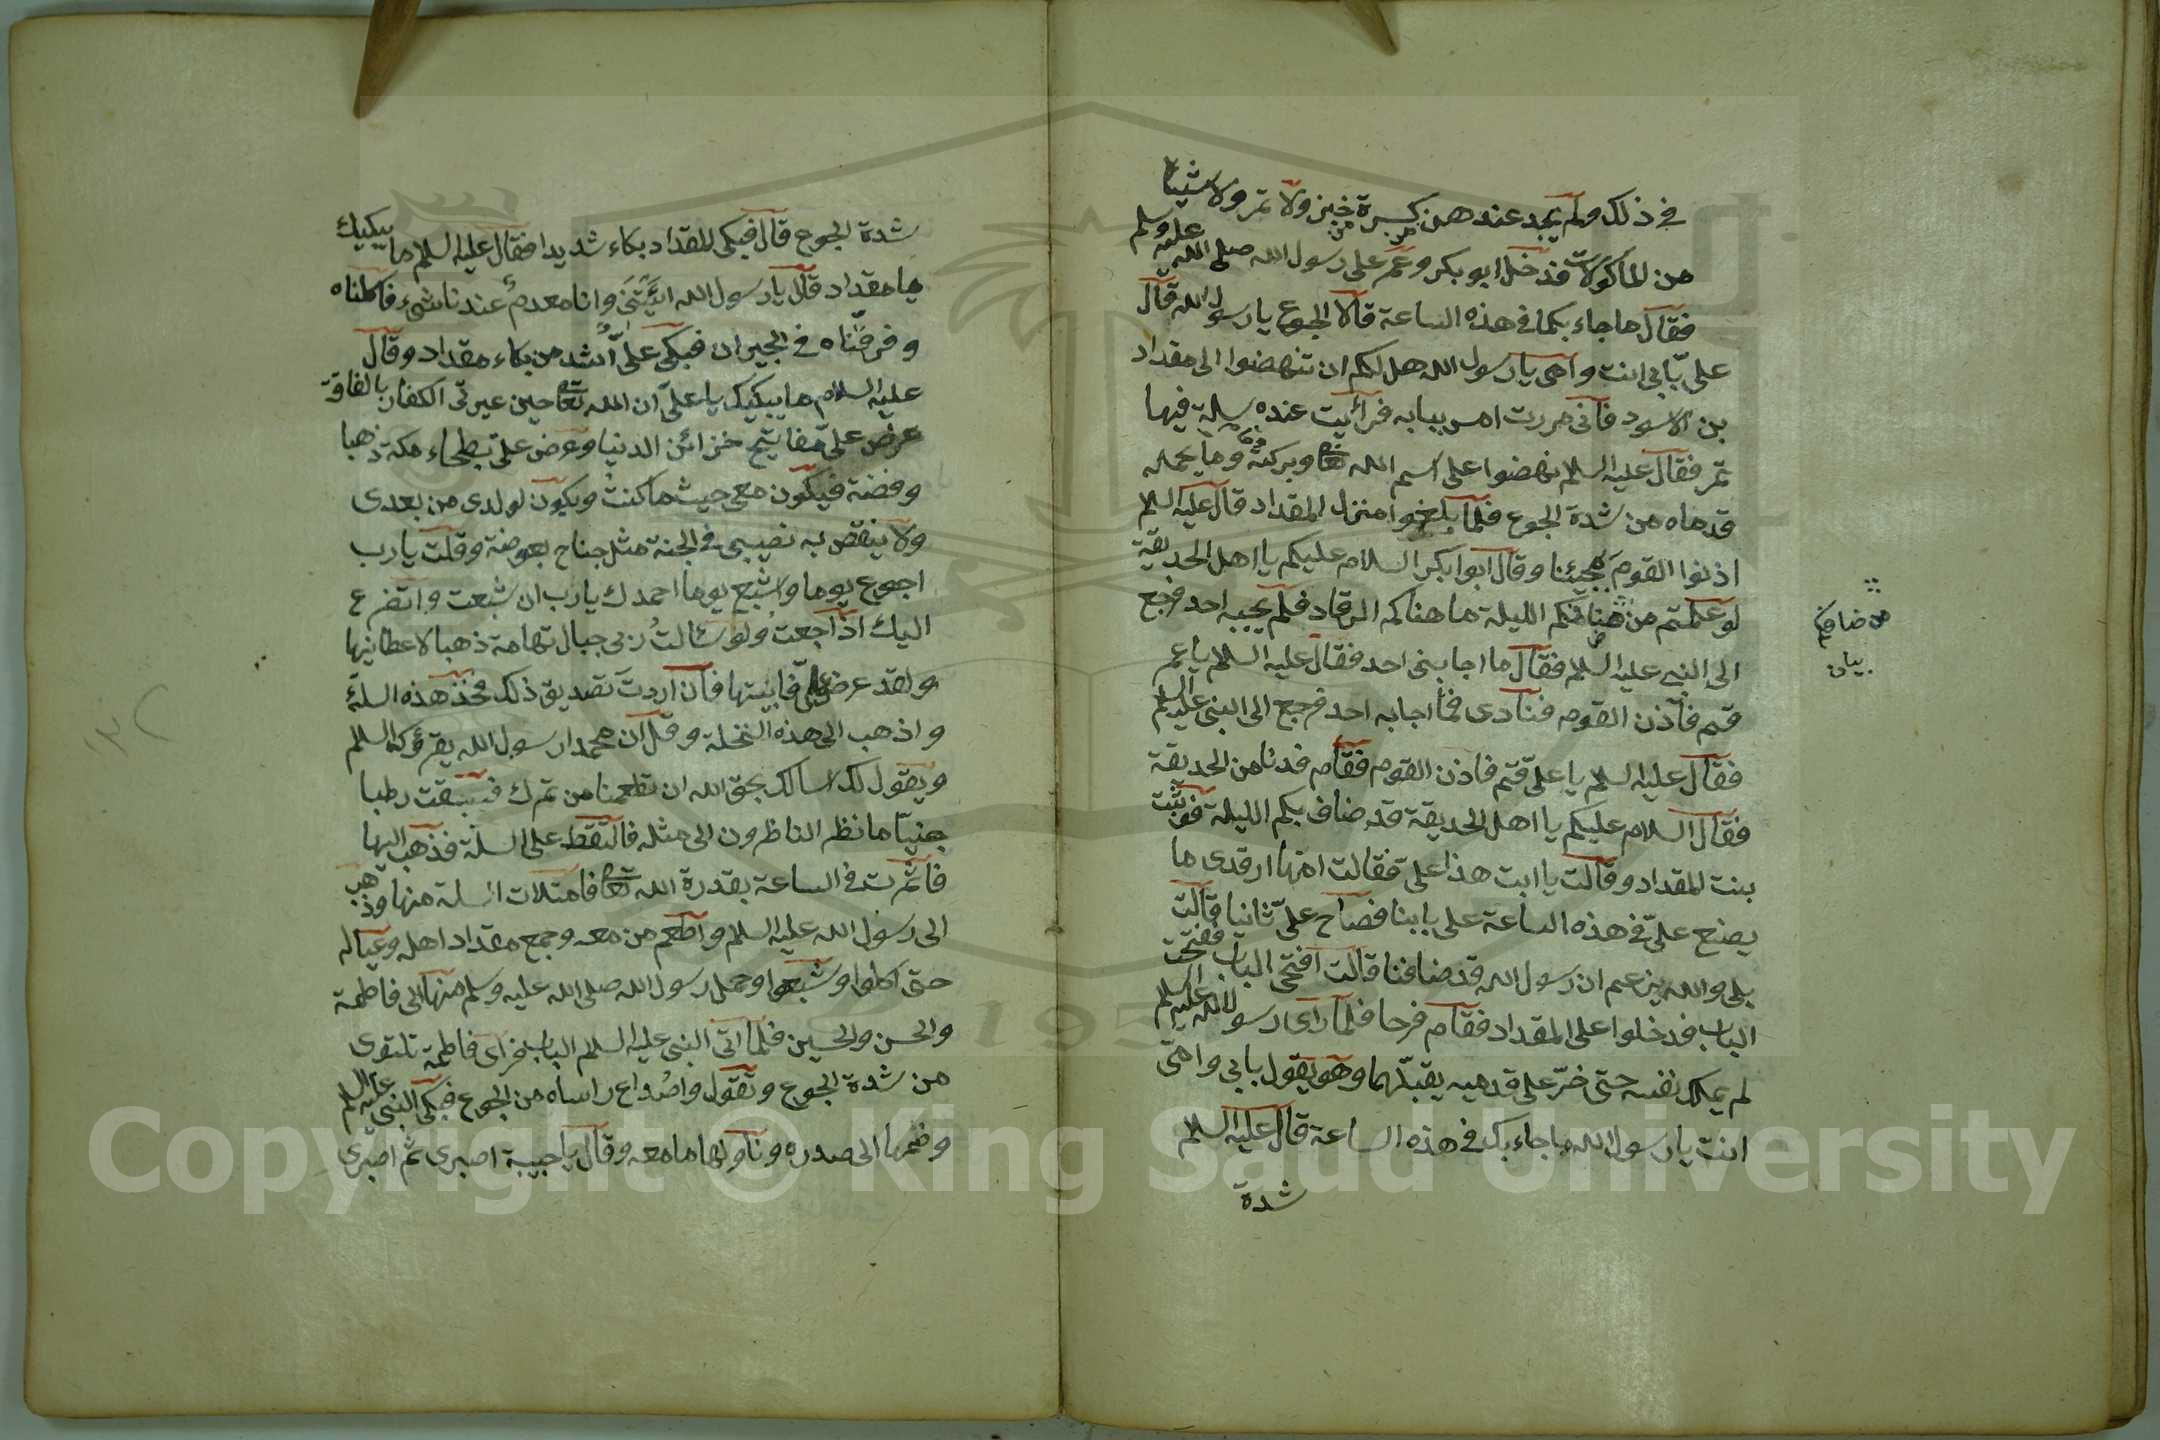 في ذلك ولم يجد عندهن كسرة خبز ولا تمر ولا شيئا
من الماكولات فدخل ابو بكر وعمر على رسول الله صلى الله عليه وسلم
فقال ما جاء بكما في هذه الساعة قالا الجوع يا رسول الله قال
على بابي انت وامي يا رسول الله هل لكم ان تنهضوا الى مقداد
بن الاسود فاني مررت امس ببابه فرأيت عنده سلة فيها
تمر فقال عليه السلم نهضوا على اسم الله تعا وبركته وما يحمله
قدماه من شدة الجوع فلما بلغوا منزل المقداد قال عليه السلم
اذنوا القوم بمجيئنا وقال ابوا بكر السلام عليكم يا اهل الحديقة
لو علمتم من ضافكم الليلة ما هناكم الرقاد فلم يجبه احد فرجع
الى النبي عليه السلم فقال ما اجابني احد فقال عليه السلم يا عمر
قم فآذن القوم فنادى فما اجابه احد فرجع الى النبي عليه السلم
فقال عليه السلم يا على قم فاذن القوم فقام فدنا من الحديقة
فقال السلام عليكم يا اهل الحديقة قد ضاف بكم الليلة فوثبت
بنت المقداد وقالت يا ابت هذا على فقالت امها ارقدى ما
يصنع على في هذه الساعة على بابنا فصاح على ثانيا قالت
بلى والله يزعم ان رسول الله قد ضافنا قالت افتحى الباب ففتحت
الباب فدخلوا على المقداد فقام فرحا فلما رأى رسول الله عليه السلم
لم يملك نفسه حتى خر على قدميه يقبلهما وهو يقول بابي وامى
انت يا رسول الله ما جاء بك في هذه الساعة قال عليه السلم
شدة
من ضافكم
بيان
شدة الجوع قال فبكى المقداد بكاء شديدا فقال عليه السلم ما يبكيك
يا مقداد قال يا رسول الله وانا معدم عندنا شىء فاكلناه
وفرقناه في الجيران فبكى على اشد من بكاء مقداد وقال
عليه السلام ما يبكيك يا على ان الله تعا حين عيرنى الكفار بالفاقة
عرض على مفاتيح خزائن الدنيا وعرض على بطحاء مكة ذهبا
وفضة فيكون معى حيث ما كنت ويكون لولدى من بعدى
ولا ينقص به نصيبى في الجنة مثل جناح بعوضة وقلت يا رب
اجوع يوما واشبع يوما احمدك يا رب ان شبعت واتضرع
اليك اذا جعت ولو سالت ربى جبال تهامة ذهبا لاعطانيها
ولقد عرض على فابيتها فان اردت تصديق ذلك فخذ هذه السلة
واذهب الى هذه النخلة وقل ان محمدا رسول الله يقرؤك السلم
ويقول لك اسالك بحق الله ان تطعمنا من تمرك رطبا
جنيا ما نظر الناظرون الى مثله فالتقط على السلة فذهب اليها
فاثمرت في الساعة بقدرة الله تعا فامتلات السلة منها وذهب
الى رسول الله عليه السلم واطعم من معه وجمع مقداد اهله وعياله
حتى اكلوا وشبعوا وحمل رسول الله صلى الله عليه وسلم منها الى فاطمة
والحسن والحسين فلما اتى النبى عليه السلم الباب فرأى فاطمة تلتوى
من شدة الجوع وتقول واصداع راساه من الجوع فبكى النبى عليه السلم
وضمها الى صدره وناولها ما معه وقال يا حبيبة اصبرى ثم اصبرى
Copyright © King Saud University